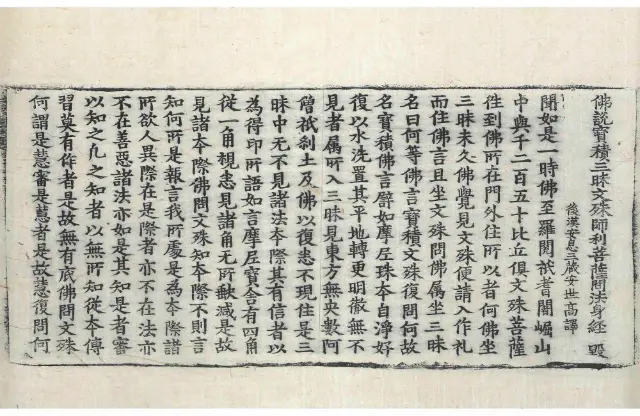 佛說寶積三昧文殊師利菩薩問法身經 毀
後漢安息三藏安世高譯
聞如是一時佛至羅閱祇耆闍崛山
中與千二百五十比丘俱文殊菩薩
徃到佛所在門外住所以者何佛坐
三昧未久佛覺見文殊便請入作礼
而住佛言且坐文殊問佛属坐三昧
名曰何等佛言寶積文殊復問何故
名寶積佛言譬如摩尼珠夲自淨好
復以水洗置其平地轉更明徹無不
見者属所入三昧見東方無央數阿
僧祇刹土及佛以復悉不現住是三
昧中无不見諸法夲際其有信者以
為得印所語如言摩尼寶舍有四角
從一角視悉見諸角无所缺减是故
見諸夲際佛問文殊知夲際不則言
知何所是報言我所處是為夲際諸
所欲人異際在是際者亦不在法亦
不在善惡諸法亦如是其知是者審
以知之凡之知者以無所知從夲傳
習莫有作者是故無有底佛問文殊
何謂是慧審是慧者是故慧復問何